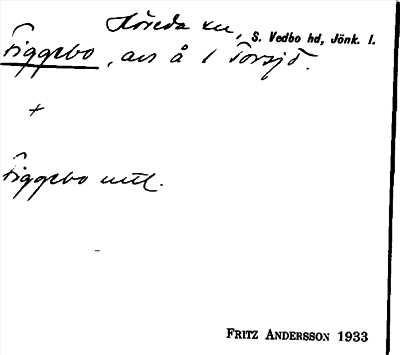 Höreda sn, S. Vedbo hd, Jönk. l.
Figgebo, avs å 1 Torsjö.
+
Figgebo mtl.
FRITZ ANDERSSON 1933